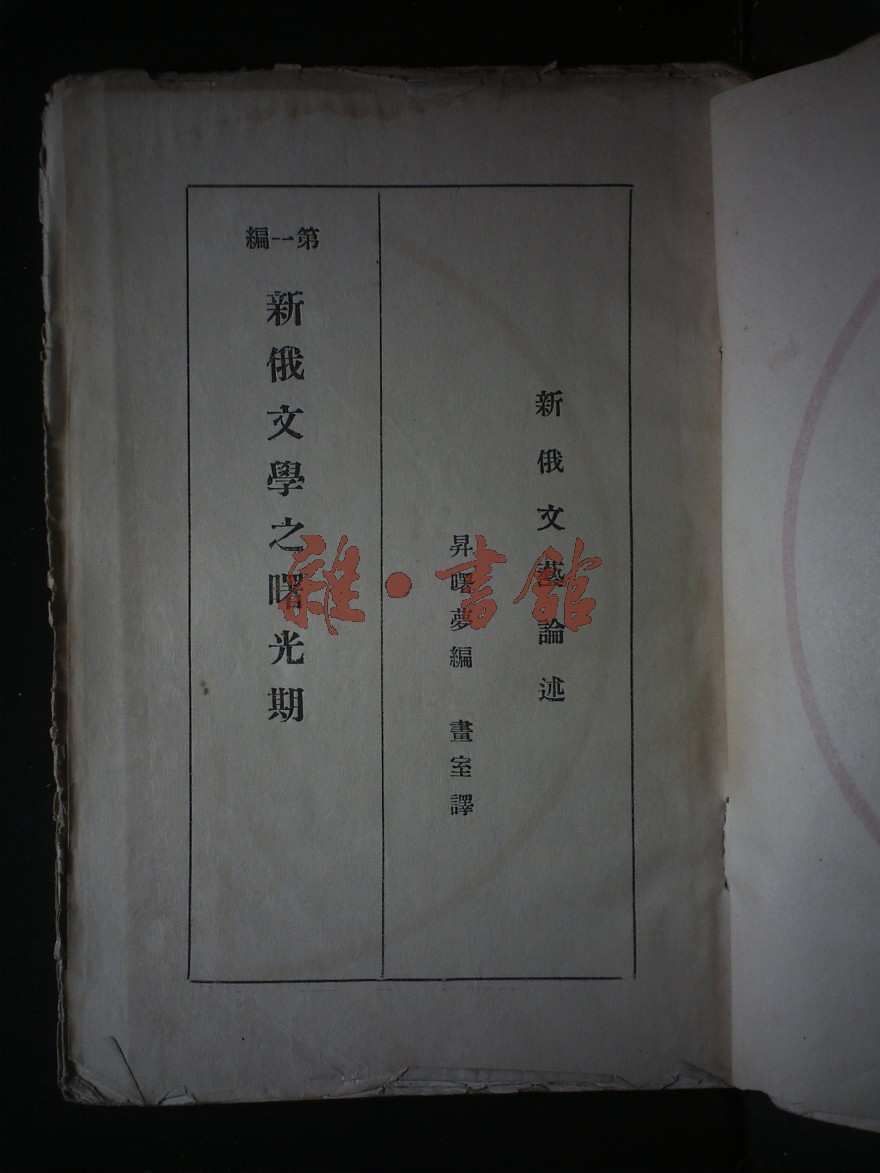 新俄文藝論述
昇曙夢編　畫室譯
第一編
新俄文學之曙光期
雜·書館